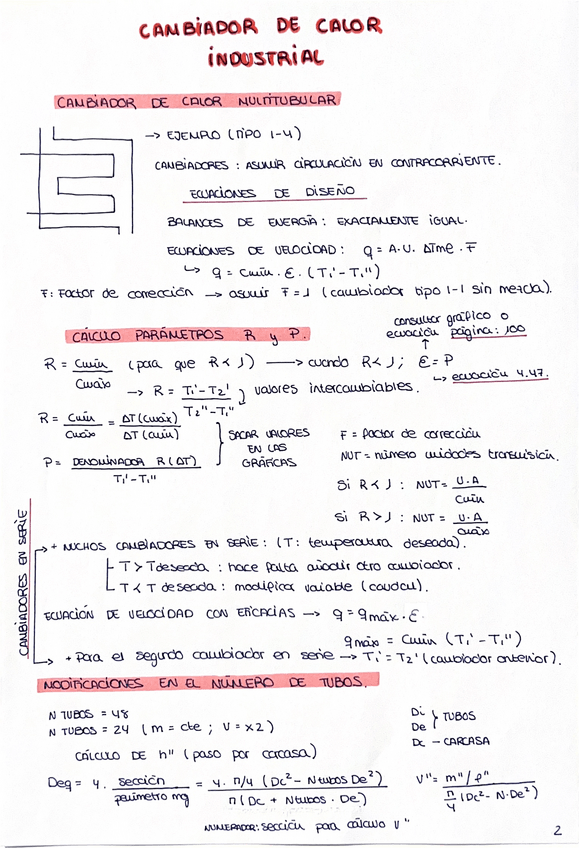 CAMBIADOR DE CALOR
INDUSTRIAL
CAMBIADOR DE CALOR MULTITUBULAR
→ EJEMPLO (TIPO 1-4)
CAMBIADORES : ASUMIR CIRCULACIÓN EN CONTRACORRIENTE.
ECUACIONES DE DISEÑO
BALANCES DE ENERGÍA : EXACTAMENTE IGUAL.
ECUACIONES DE VELOCIDAD : q = A·U· ΔTme · F
↳ q = Cmín · Ɛ · (T₁' - T₁'')
F: Factor de corrección → asumir F = 1 (cambiador tipo 1-1 sin mezcla).
consultar gráfico o
ecuación página: 100
CÁLCULO PARÁMETROS R y P.
R = Cmín / Cmáx (para que R < 1) → cuando R < 1 ; Ɛ = P
↳ ecuación 4.47.
→ R = T₁' - T₂' / T₂'' - T₁'' valores intercambiables.
R = Cmín / Cmáx = ΔT (Cmáx) / ΔT (Cmín)
P = DENOMINADOR R (ΔT) / T₁' - T₁''
SACAR VALORES
EN LAS
GRÁFICAS
F = factor de corrección
NUT = número unidades transmisión.
Si R < 1 : NUT = U·A / Cmín
Si R > 1 : NUT = U·A / Cmáx
CAMBIADORES EN SERIE
+ MUCHOS CAMBIADORES EN SERIE : (T: temperatura deseada).
T > T deseada : hace falta añadir otro cambiador.
T < T deseada : modificar variable (caudal).
ECUACIÓN DE VELOCIDAD CON EFICACIAS → q = qmáx · Ɛ.
qmáx = Cmín (T₁' - T₁'')
+ Para el segundo cambiador en serie → T₁' = T₂' (cambiador anterior).
MODIFICACIONES EN EL NÚMERO DE TUBOS.
N TUBOS = 48
N TUBOS = 24 (m = cte ; V = x2)
Di
De } TUBOS
Dc - CARCASA
CÁLCULO DE h'' (paso por carcasa)
Deq = 4 · sección / perímetro mg = 4 · π/4 (Dc² - Ntubos De²) / π (Dc + Ntubos · De)
V'' = m'' / ρ'' / π/4 (Dc² - N·De²)
NUMERADOR: sección para cálculo V''
2